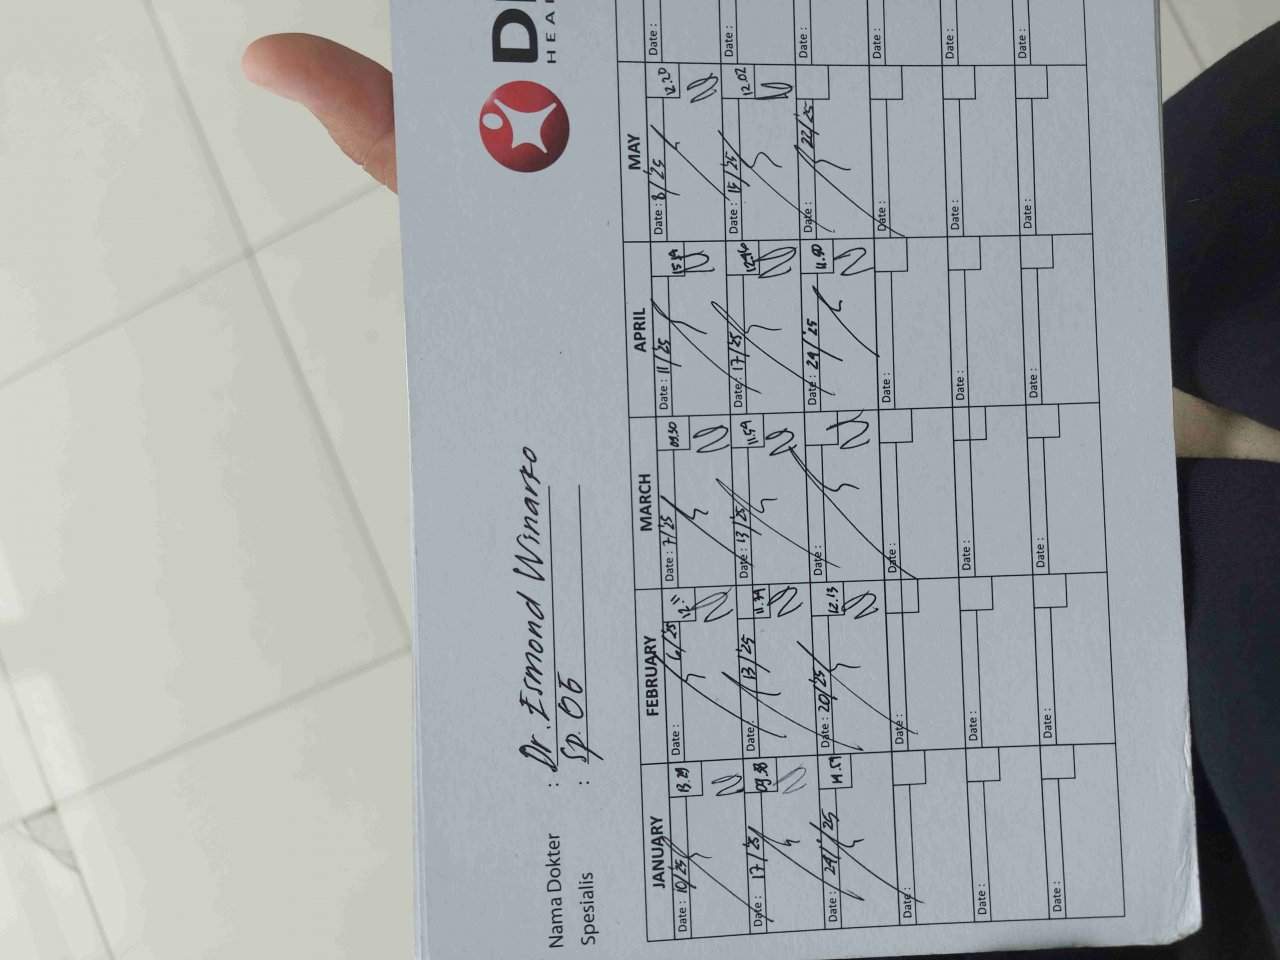 Nama Dokter : Dr. Esmond Winarko
Spesialis : Sp. OG
JANUARY FEBRUARY MARCH APRIL MAY
Date : 10/25 13.29 Date : 6/25 12.11 Date : 7/25 09.30 Date : 11/25 15.19 Date : 8/25 12.20 Date :
Date : 17/25 09.38 Date : 13/25 11.39 Date : 13/25 11.59 Date : 17/25 Date : 15/25 12.02 Date :
Date : 24/25 Date : 20/25 12.13 Date : Date : 24/25 11.40 Date : 22/25 Date :
Date : Date : Date : Date : Date : Date :
Date : Date : Date : Date : Date : Date :
Date : Date : Date : Date : Date : Date :